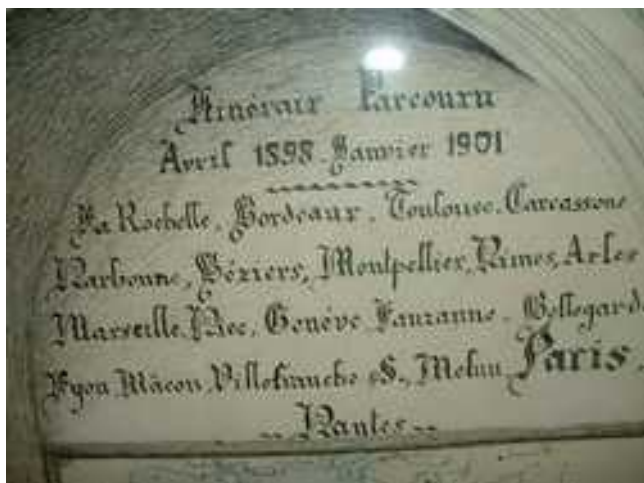 Itinérair Parcouru
Avril 1898 - Janvier 1901
La Rochelle, Bordeaux, Toulouse, Carcassone
Narbonne, Béziers, Montpellier, Nimes, Arles
Marseille, Nice, Genève, Lauzanne - Bellegarde
Lyon, Mâcon, Villefranche s/S., Melun, Paris,
Nantes